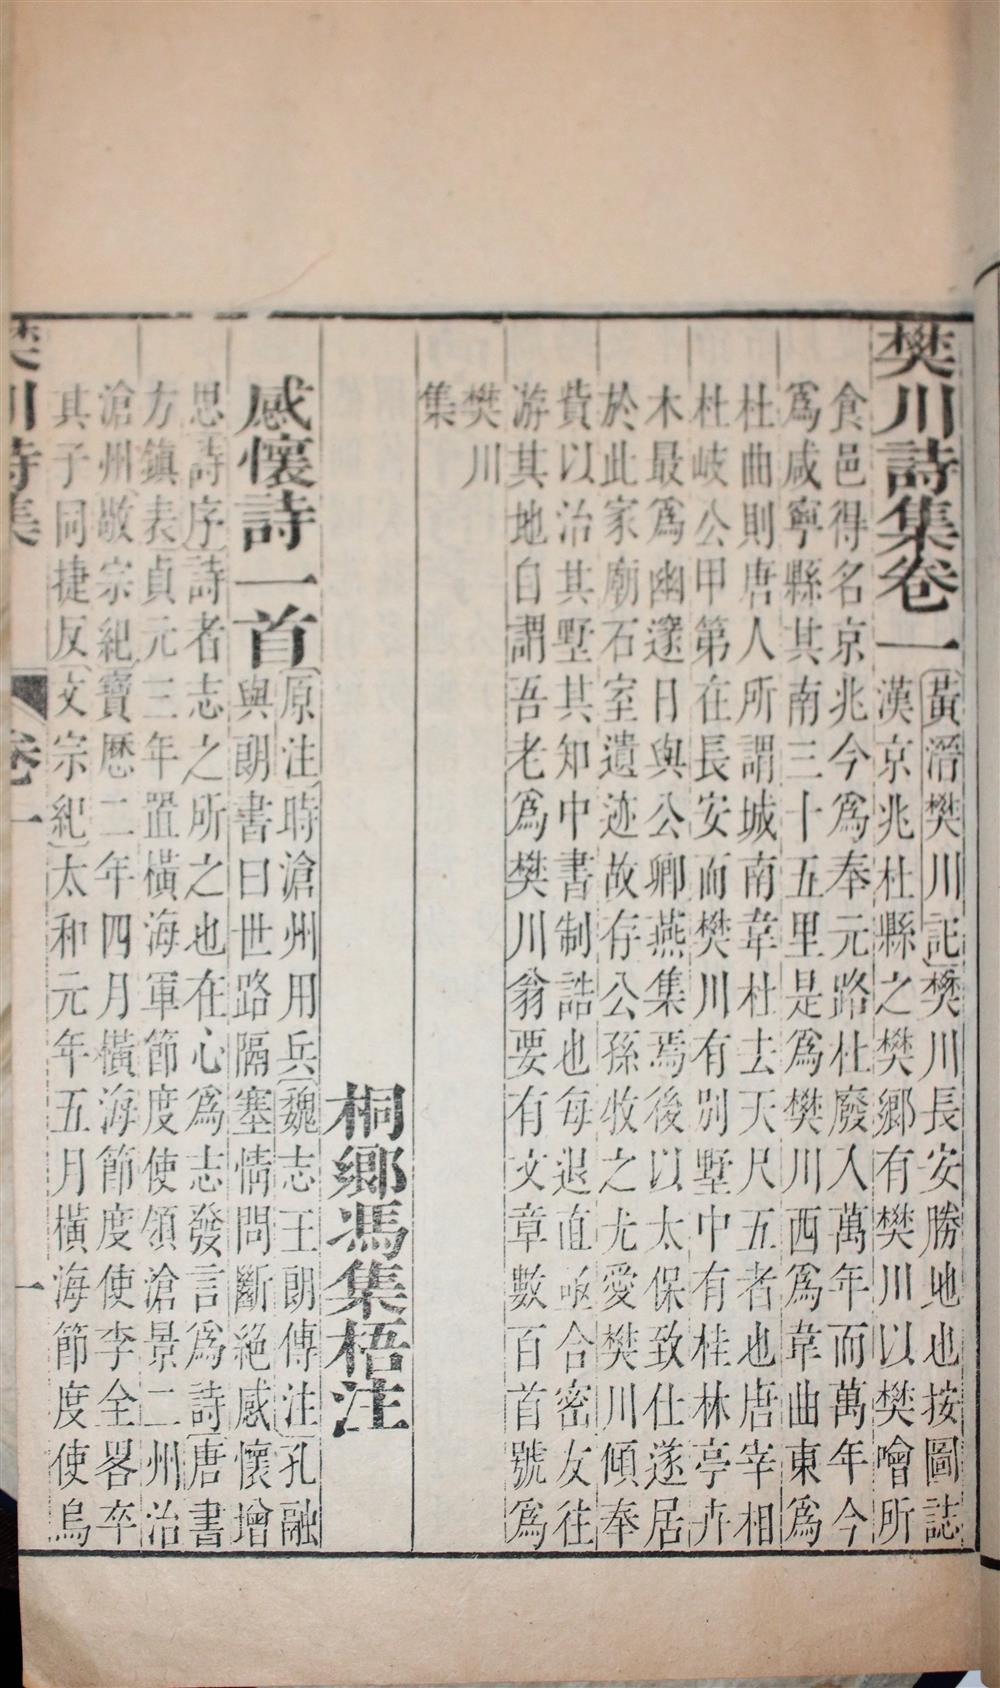 樊川詩集卷一
黃溍樊川記樊川長安勝地也按圖誌
漢京兆杜縣之樊鄉有樊川以樊噲所
食邑得名京兆今為奉元路杜廢入萬年而萬年今
爲咸寧縣其南三十五里是爲樊川西爲韋曲東爲
杜曲則唐人所謂城南韋杜去天尺五者也唐宰相
杜岐公甲第在長安而樊川有別墅中有桂林亭卉
木最爲幽邃日與公卿燕集焉後以太保致仕遂居
於此家廟石室遺迹故存公孫牧之尤愛樊川傾奉
貲以治其墅其知中書制誥也每退直亟合密友往
游其地自謂吾老爲樊川翁要有文章數百首號爲
樊川
集
桐鄉馮集梧注
感懷詩一首
原注時滄州用兵魏志王朗傳注孔融
與朗書曰世路隔塞情問斷絕感懷增
思詩序詩者志之所之也在心爲志發言爲詩唐書
方鎮表貞元三年置橫海軍節度使領滄景二州治
滄州敬宗紀寶曆二年四月橫海節度使李全畧卒
其子同捷反文宗紀太和元年五月橫海節度使烏
樊川詩集
卷一
一